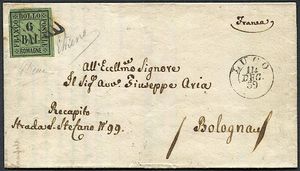 FRANCO BOLLO
6
BAJ
ROMAGNE
Franca
All' Eccellmo Signore
Il Sig. Avv. Giuseppe Aria
Recapito
Strada S. Stefano No 99.
Bologna
LUGO
11
DEC
59